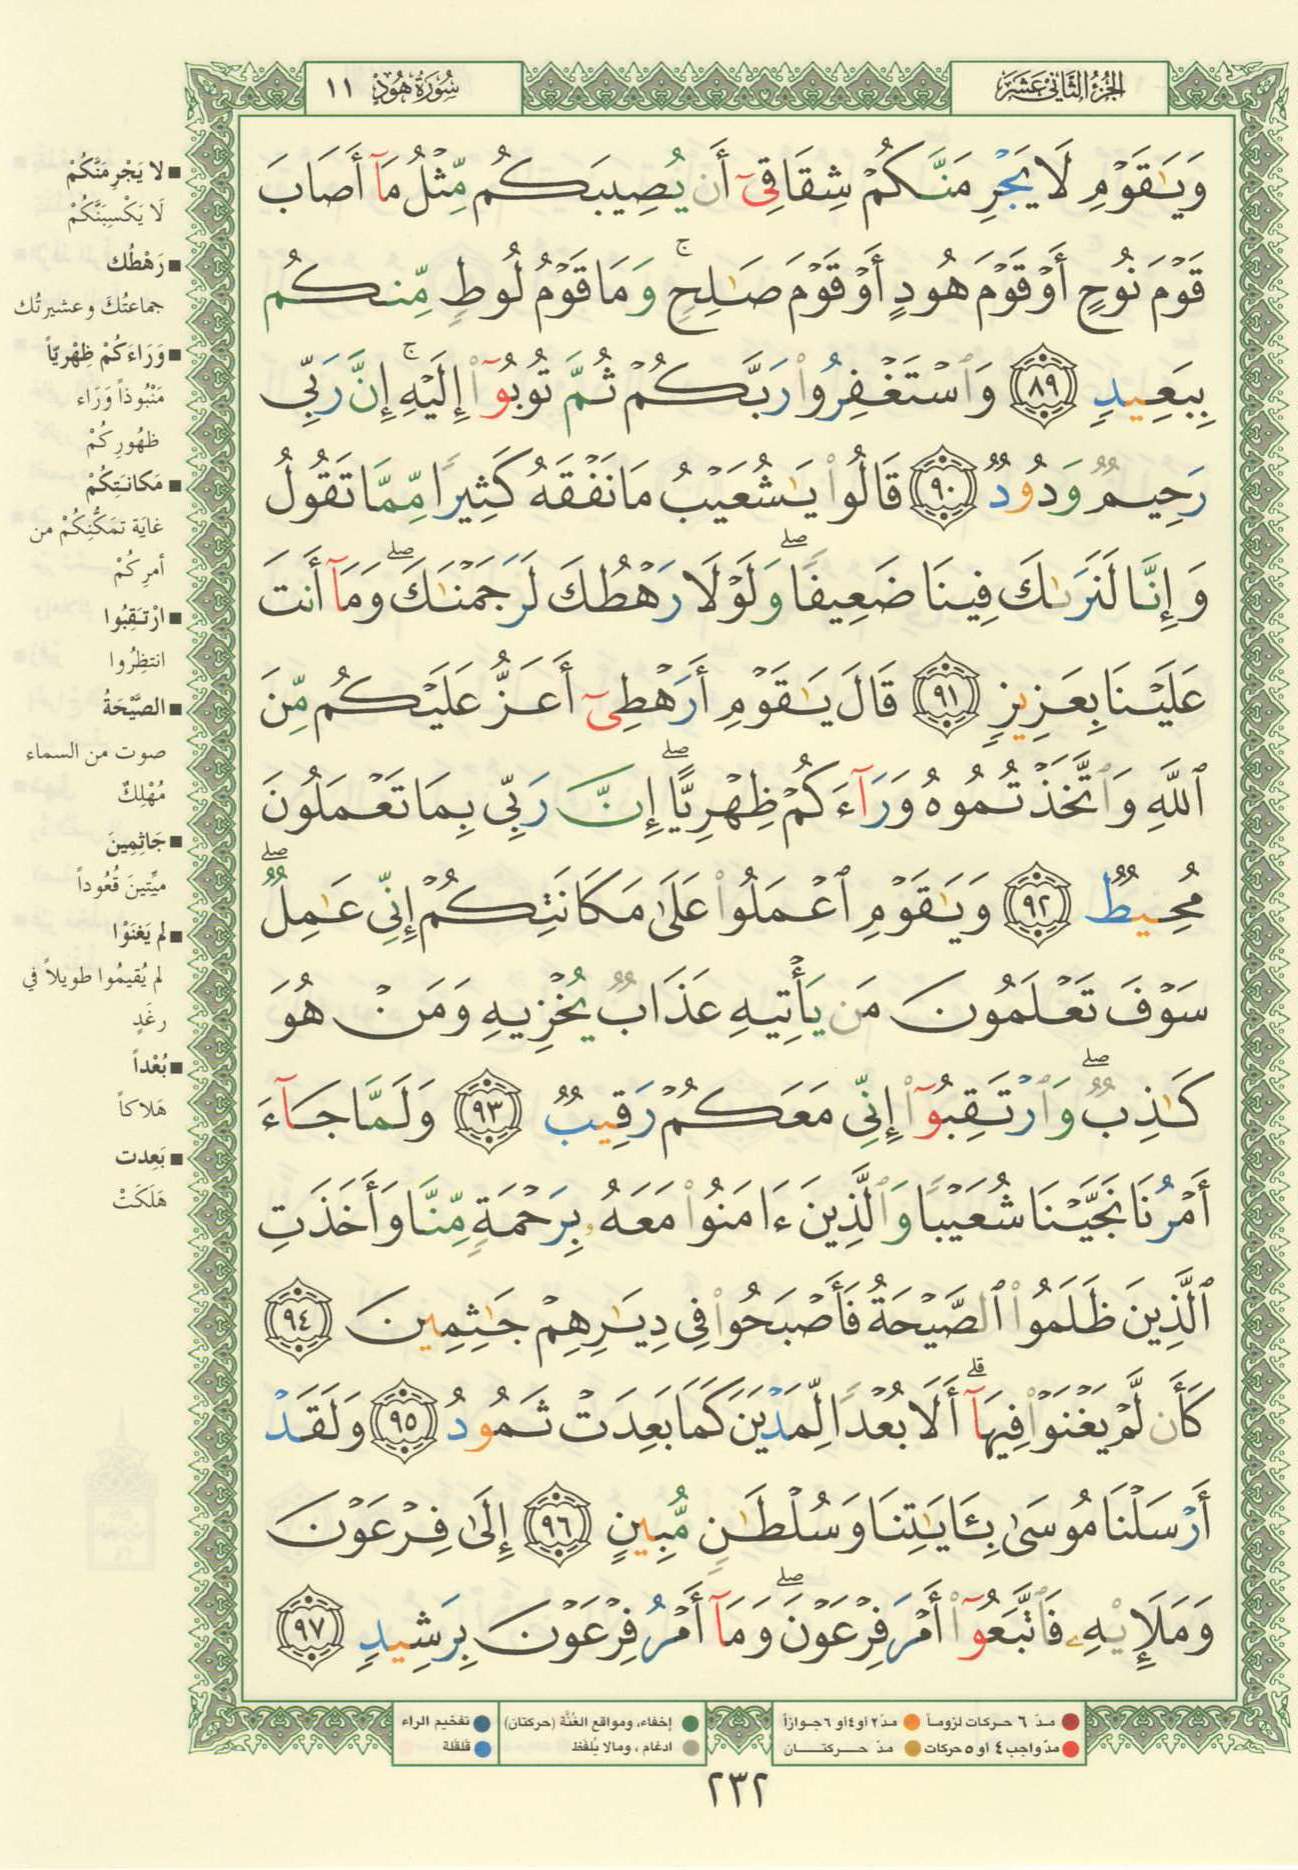 الجزء الثاني عشر
سورة هود ١١
وَيَٰقَوْمِ لَا يَجْرِمَنَّكُمْ شِقَاقِىٓ أَن يُصِيبَكُم مِّثْلُ مَآ أَصَابَ
قَوْمَ نُوحٍ أَوْ قَوْمَ هُودٍ أَوْ قَوْمَ صَٰلِحٍ ۚ وَمَا قَوْمُ لُوطٍ مِّنكُم
بِبَعِيدٍ ٨٩ وَٱسْتَغْفِرُوا۟ رَبَّكُمْ ثُمَّ تُوبُوٓا۟ إِلَيْهِ ۚ إِنَّ رَبِّى
رَحِيمٌ وَدُودٌ ٩٠ قَالُوا۟ يَٰشُعَيْبُ مَا نَفْقَهُ كَثِيرًا مِّمَّا تَقُولُ
وَإِنَّا لَنَرَىٰكَ فِينَا ضَعِيفًا ۖ وَلَوْلَا رَهْطُكَ لَرَجَمْنَٰكَ ۖ وَمَآ أَنتَ
عَلَيْنَا بِعَزِيزٍ ٩١ قَالَ يَٰقَوْمِ أَرَهْطِىٓ أَعَزُّ عَلَيْكُم مِّنَ
ٱللَّهِ وَٱتَّخَذْتُمُوهُ وَرَآءَكُمْ ظِهْرِيًّا ۖ إِنَّ رَبِّى بِمَا تَعْمَلُونَ
مُحِيطٌ ٩٢ وَيَٰقَوْمِ ٱعْمَلُوا۟ عَلَىٰ مَكَانَتِكُمْ إِنِّى عَٰمِلٌ ۖ
سَوْفَ تَعْلَمُونَ مَن يَأْتِيهِ عَذَابٌ يُخْزِيهِ وَمَنْ هُوَ
كَٰذِبٌ ۖ وَٱرْتَقِبُوٓا۟ إِنِّى مَعَكُمْ رَقِيبٌ ٩٣ وَلَمَّا جَآءَ
أَمْرُنَا نَجَّيْنَا شُعَيْبًا وَٱلَّذِينَ ءَامَنُوا۟ مَعَهُۥ بِرَحْمَةٍ مِّنَّا وَأَخَذَتِ
ٱلَّذِينَ ظَلَمُوا۟ ٱلصَّيْحَةُ فَأَصْبَحُوا۟ فِى دِيَٰرِهِمْ جَٰثِمِينَ ٩٤
كَأَن لَّمْ يَغْنَوْا۟ فِيهَآ ۗ أَلَا بُعْدًا لِّمَدْيَنَ كَمَا بَعِدَتْ ثَمُودُ ٩٥ وَلَقَدْ
أَرْسَلْنَا مُوسَىٰ بِـَٔايَٰتِنَا وَسُلْطَٰنٍ مُّبِينٍ ٩٦ إِلَىٰ فِرْعَوْنَ
وَمَلَإِي۟هِۦ فَٱتَّبَعُوٓا۟ أَمْرَ فِرْعَوْنَ ۖ وَمَآ أَمْرُ فِرْعَوْنَ بِرَشِيدٍ ٩٧
■ لا يَجْرِمَنَّكُمْ
لَا يَكْسِبَنَّكُمْ
■ رَهْطُك
جماعتُكَ وعشيرتُك
■ وَرَاءَكُمْ ظِهْرِيّاً
مَنْبُوذاً وَرَاء
ظهُورِكُمْ
■ مَكانَتِكُمْ
غايَة تمَكُّنِكُمْ من
أمرِكُمْ
■ ارْتَقِبُوا
انتظِرُوا
■ الصَّيْحَةُ
صوت من السماء
مُهْلِكٌ
■ جَاثِمِينَ
ميِّتينَ قُعُوداً
■ لم يَغنَوْا
لم يُقيمُوا طويلاً في
رغَدٍ
■ بُعْداً
هَلاكاً
■ بَعِدت
هَلَكَتْ
مدّ ٦ حركات لزوماً ● مدّ ٢ او ٤ او ٦ جوازاً
مدّ واجب ٤ او ٥ حركات ● مدّ حركتان
إخفاء، ومواقع الغُنَّة (حركتان) ● تفخيم الراء
ادغام، ومالا يُلفظ ● قلقلة
٢٣٢